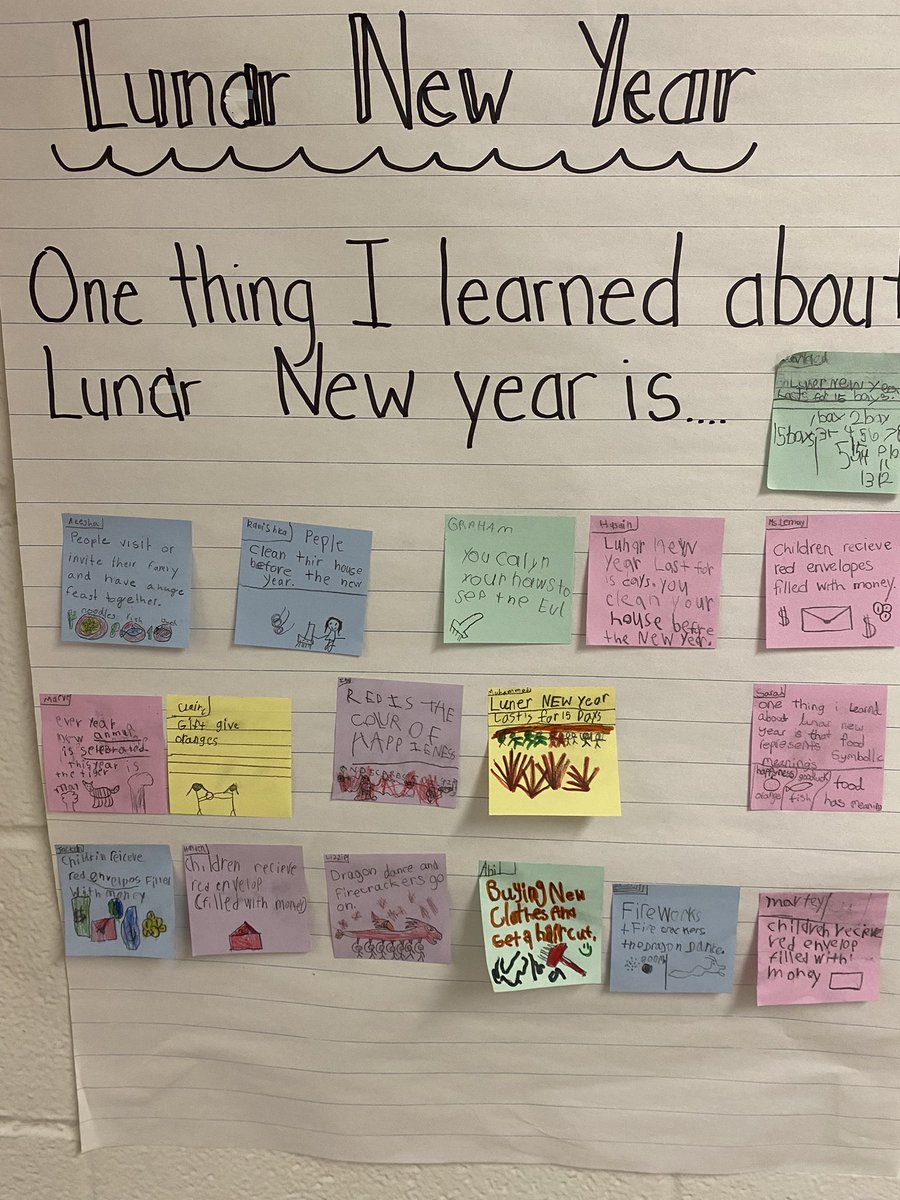 Lunar New Year
One thing I learned about
Lunar New year is....
Luner new yea
Lasts for 15 bays.
1bax 2bax
15baxs 3r 4 5 6 7
13 12
Aeesha
People visit or
invite their family
and have a huge
feast together.
noodles fish
Kanishka Peple
Clean thir house
before the new
year.
GRAHAM
you caljn
your haws to
sep the Evl
Husain
Lunar new
year Last for
15 days. you
clean your
house before
the New year.
Ms. Lemay
Children recieve
red envelopes
filled with money.
$ $
Marvi
ever year a
new anmel
is selebrated
this year is
the tiger
Claire
Gift give
oranges
RED IS THE
COUR OF
HAPPIENESS
Muhammed
Luner NEW year
Last's for 15 Days
Sarah
one thing i learnd
about lunar new
year is that food
represents symbolic
meanings
happyness goodluck food
orange fish has meaning
Jackson
Childrin reiceve
red envelpos Filled
With money
Children recieve
red envelop
(filled with money)
Lizzie
Dragon dance and
Firecrackers go
on.
Abil
Buying New
Clothes And
Get a haircut.
FireWorks
+Fire crackers
the Dragon Dance.
BOOM
martey
children recieve
red envelop
filled with
money